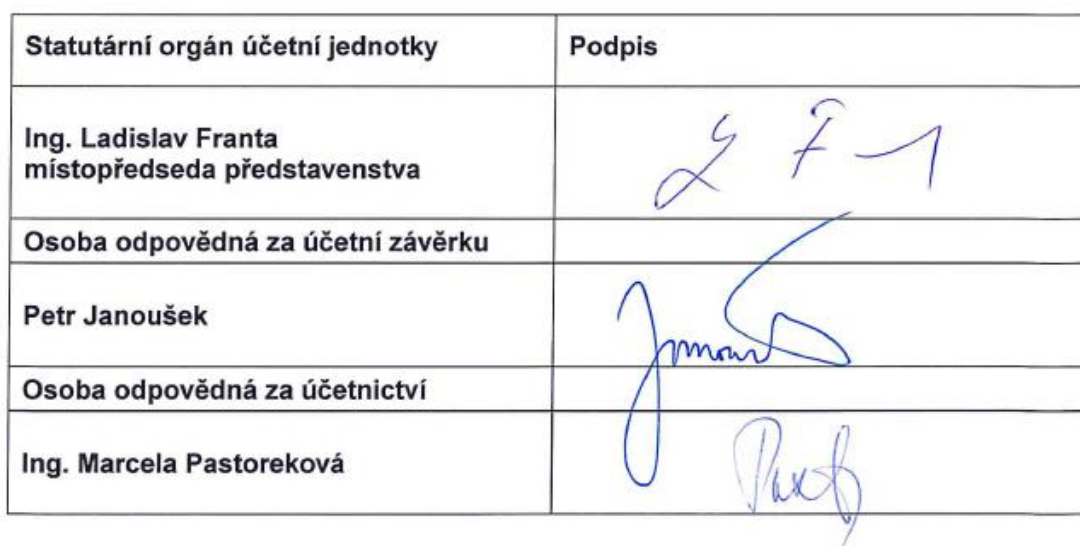 Statutární orgán účetní jednotky
Podpis
Ing. Ladislav Franta
místopředseda představenstva
Osoba odpovědná za účetní závěrku
Petr Janoušek
Osoba odpovědná za účetnictví
Ing. Marcela Pastoreková